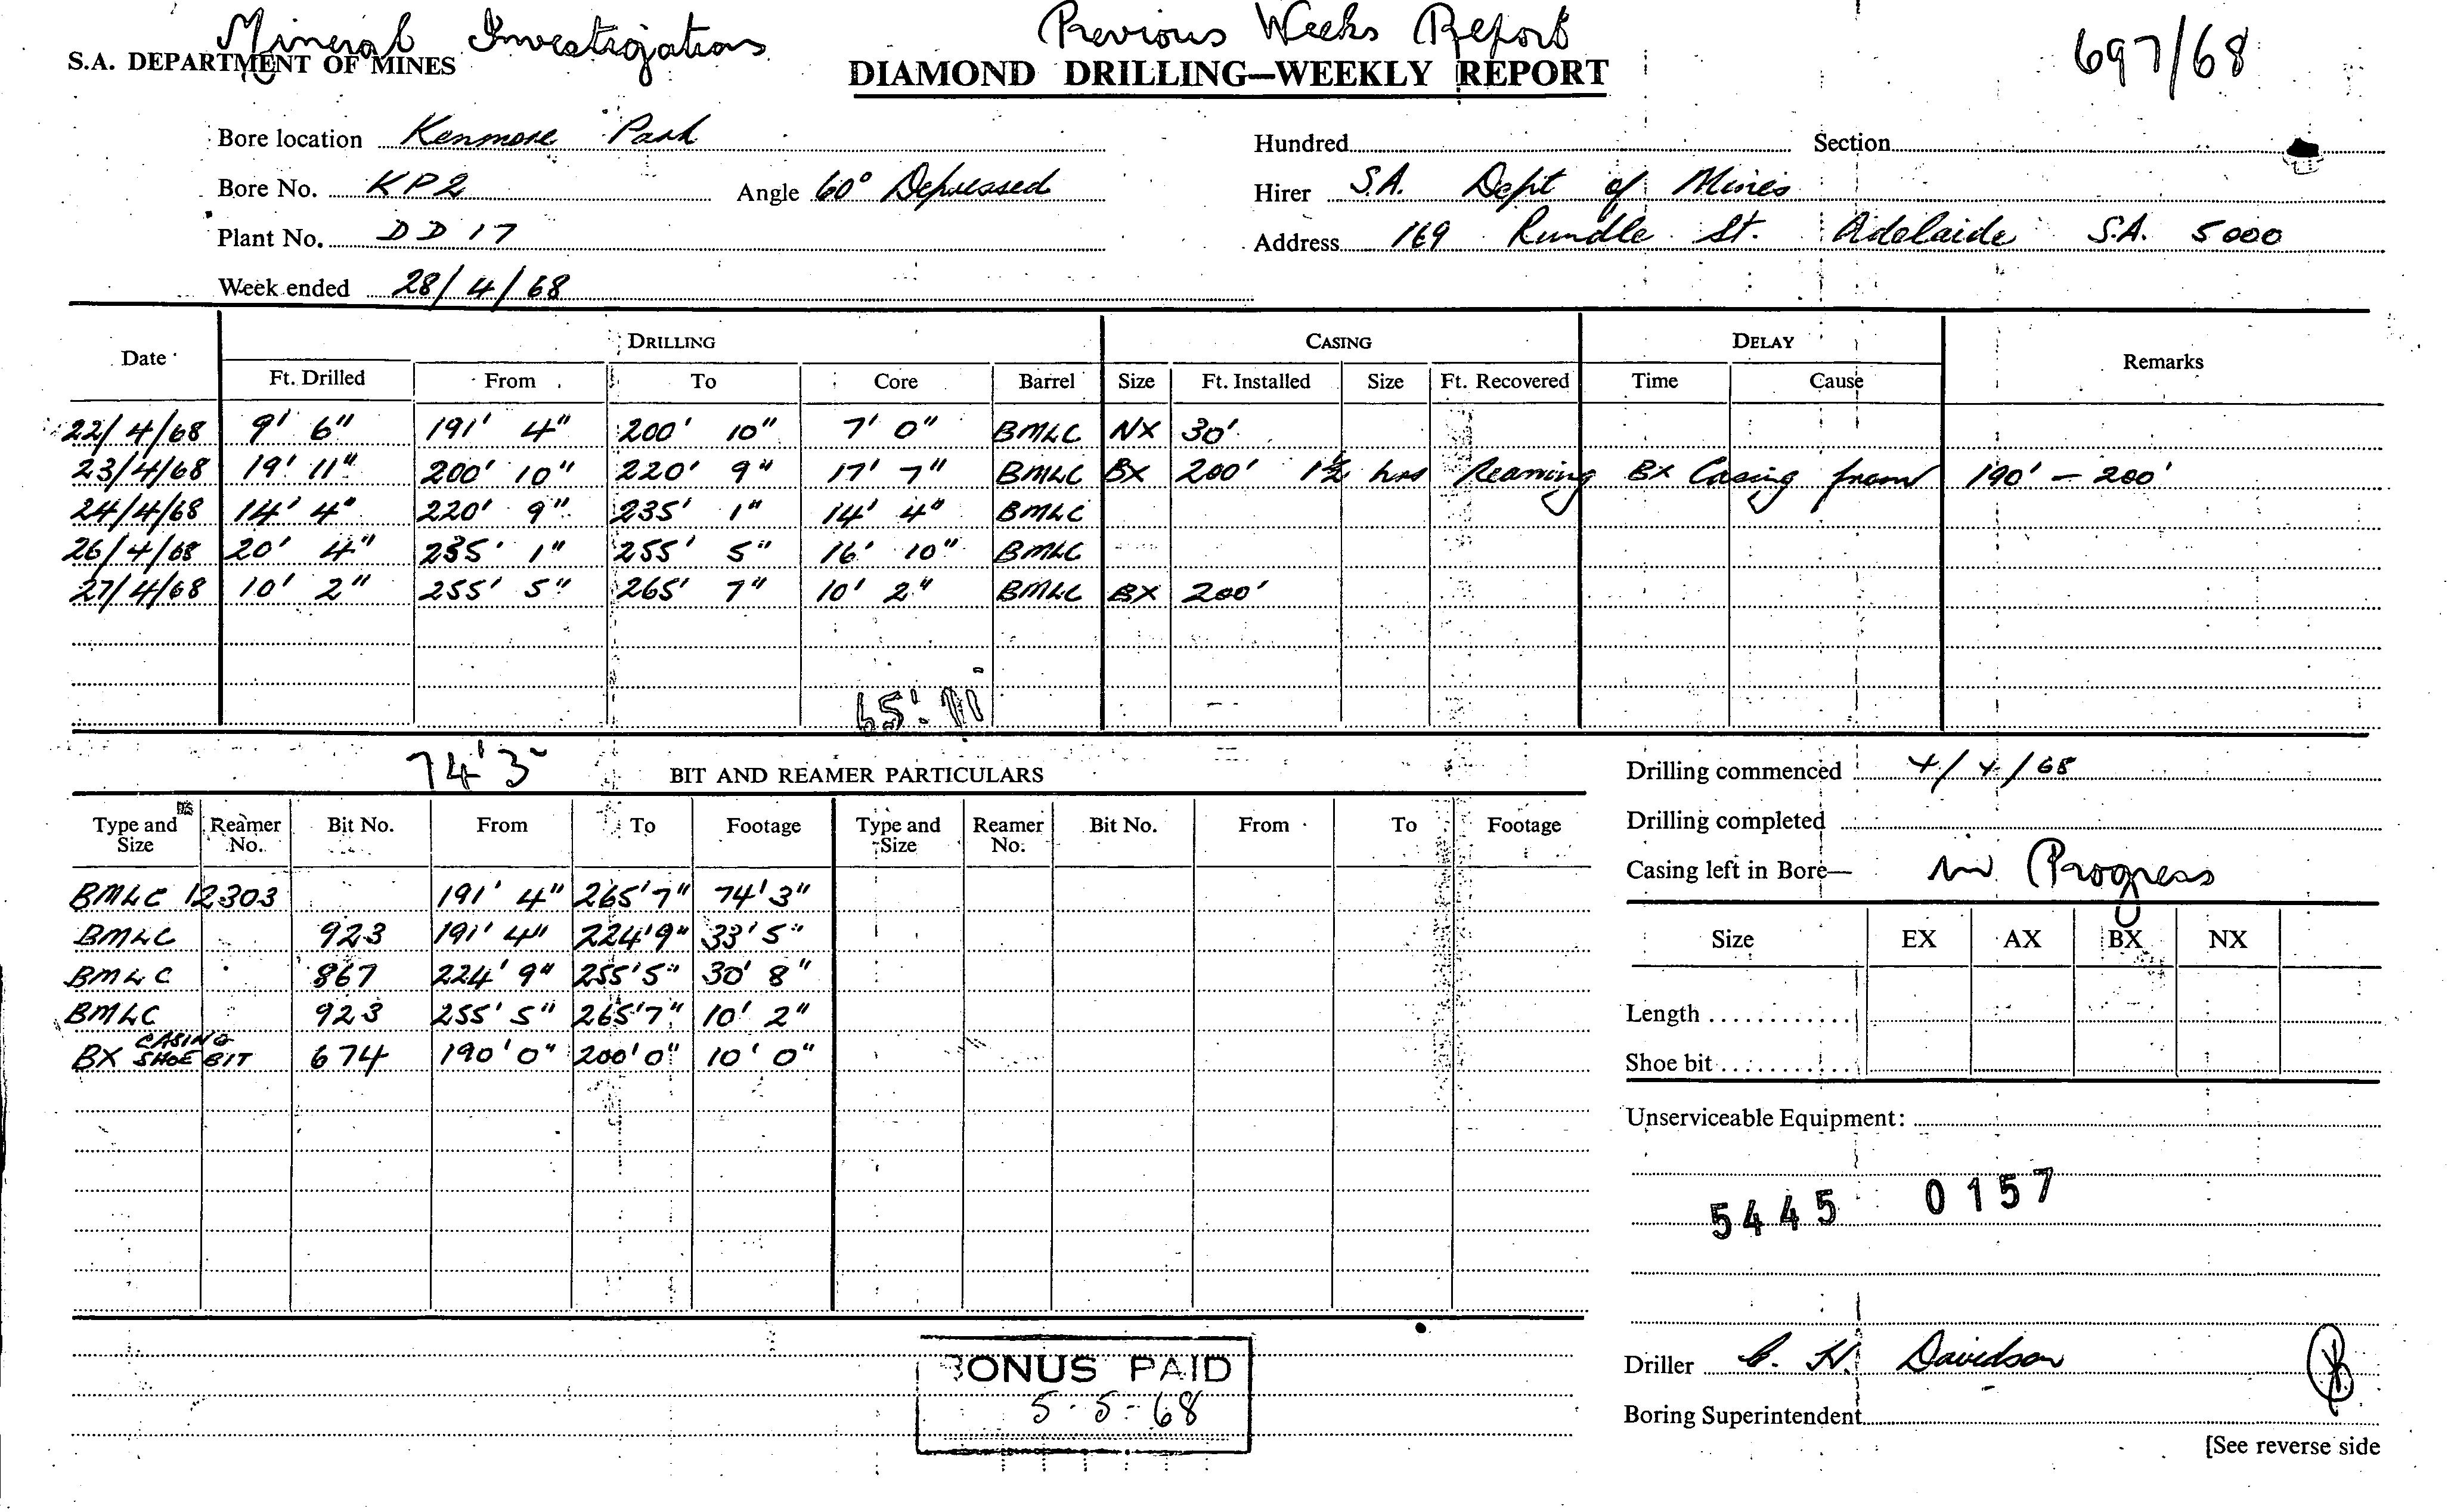 Mineral Investigations Previous Weeks Report 697/68
S.A. DEPARTMENT OF MINES DIAMOND DRILLING—WEEKLY REPORT
Bore location Kenmore Park Hundred Section
Bore No. KP2 Angle 60° Depressed Hirer S.A. Dept of Mines
Plant No. DD 17 Address 169 Rundle St. Adelaide S.A. 5000
Week ended 28/4/68
Date DRILLING CASING DELAY Remarks
Ft. Drilled From To Core Barrel Size Ft. Installed Size Ft. Recovered Time Cause
22/4/68 9' 6" 191' 4" 200' 10" 7' 0" BMLC NX 30'
23/4/68 19' 11" 200' 10" 220' 9" 17' 7" BMLC BX 200' 1½ hrs Reaming BX Casing from 190' - 200'
24/4/68 14' 4" 220' 9" 235' 1" 14' 4" BMLC
26/4/68 20' 4" 235' 1" 255' 5" 16' 10" BMLC
27/4/68 10' 2" 255' 5" 265' 7" 10' 2" BMLC BX 200'
65' 11
74' 3" BIT AND REAMER PARTICULARS Drilling commenced 4/4/68
Type and Size Reamer No. Bit No. From To Footage Type and Size Reamer No. Bit No. From To Footage
Drilling completed
Casing left in Bore— in Progress
BMLC 12303 191' 4" 265' 7" 74' 3"
BMLC 923 191' 4" 224' 9" 33' 5"
BMLC 867 224' 9" 255' 5" 30' 8"
BMLC 923 255' 5" 265' 7" 10' 2"
BX CASING SHOE BIT 674 190' 0" 200' 0" 10' 0"
Size EX AX BX NX
Length ............
Shoe bit ..........
Unserviceable Equipment:
5445 0157
BONUS PAID
5-5-68
Driller H. Davidson
Boring Superintendent
[See reverse side